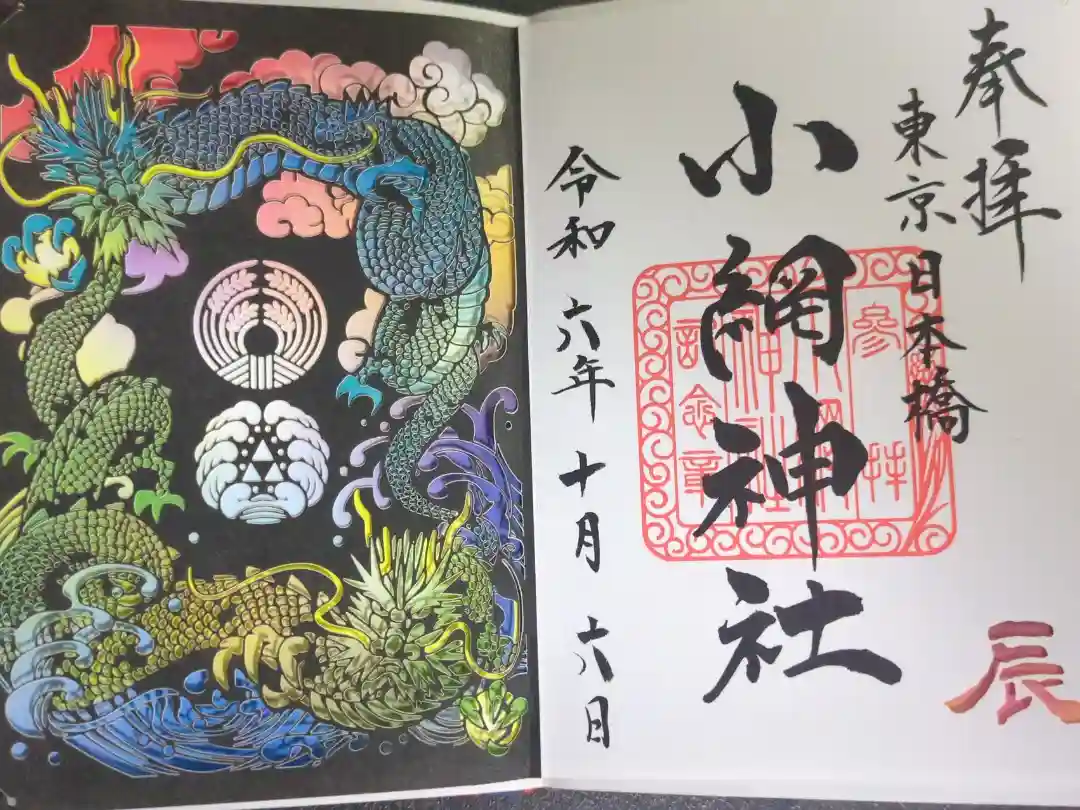 奉拝
東京
日本橋
小網神社
参拝
記念章
令和六年十月六日
辰